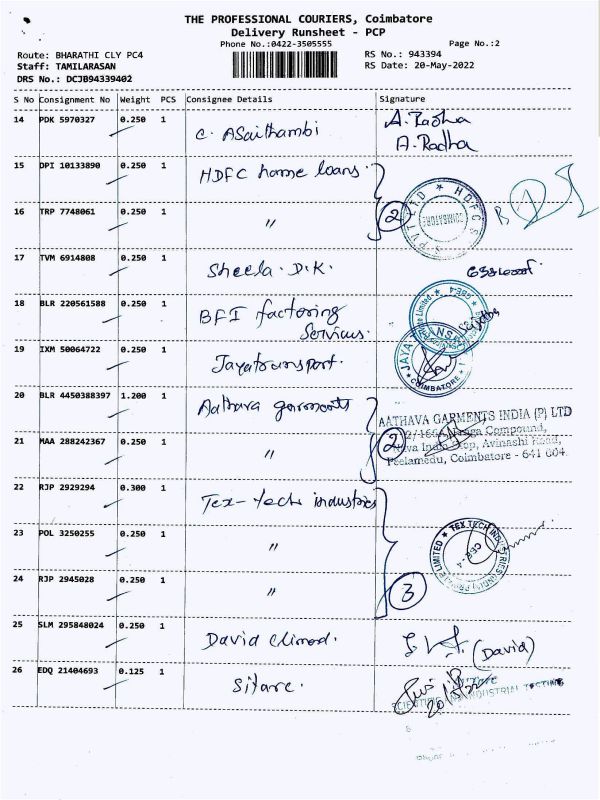 THE PROFESSIONAL COURIERS, Coimbatore
Delivery Runsheet - PCP
Phone No.:0422-3505555 Page No.:2
Route: BHARATHI CLY PC4 RS No.: 943394
Staff: TAMILARASAN RS Date: 20-May-2022
DRS No.: DCJB94339402
S No Consignment No Weight PCS Consignee Details Signature
14 PDK 5970327 0.250 1 C. ASaithambi A. Radha
A. Radha
15 DPI 10133890 0.250 1 HDFC home loans.
16 TRP 7748061 0.250 1 " 2 COIMBATORE
17 TVM 6914808 0.250 1 Sheela. D.K.
18 BLR 220561588 0.250 1 BFI factoring
Services.
19 IXM 50064722 0.250 1 Jayatransport. COIMBATORE
20 BLR 4450388397 1.200 1 Aathava garments AATHAVA GARMENTS INDIA (P) LTD
Compound,
21 MAA 288242367 0.250 1 " 2 Avinashi Road,
Peelamedu, Coimbatore - 641 004.
22 RJP 2929294 0.300 1 Tex-tech industries
23 POL 3250255 0.250 1 " TEX TECH INDUSTRIES (INDIA) PRIVATE LIMITED
CBE-4
24 RJP 2945028 0.250 1 " 3
25 SLM 295848024 0.250 1 David (David)
26 EDQ 21404693 0.125 1 Sitarc. 20/5/22
INDUSTRIAL TESTING